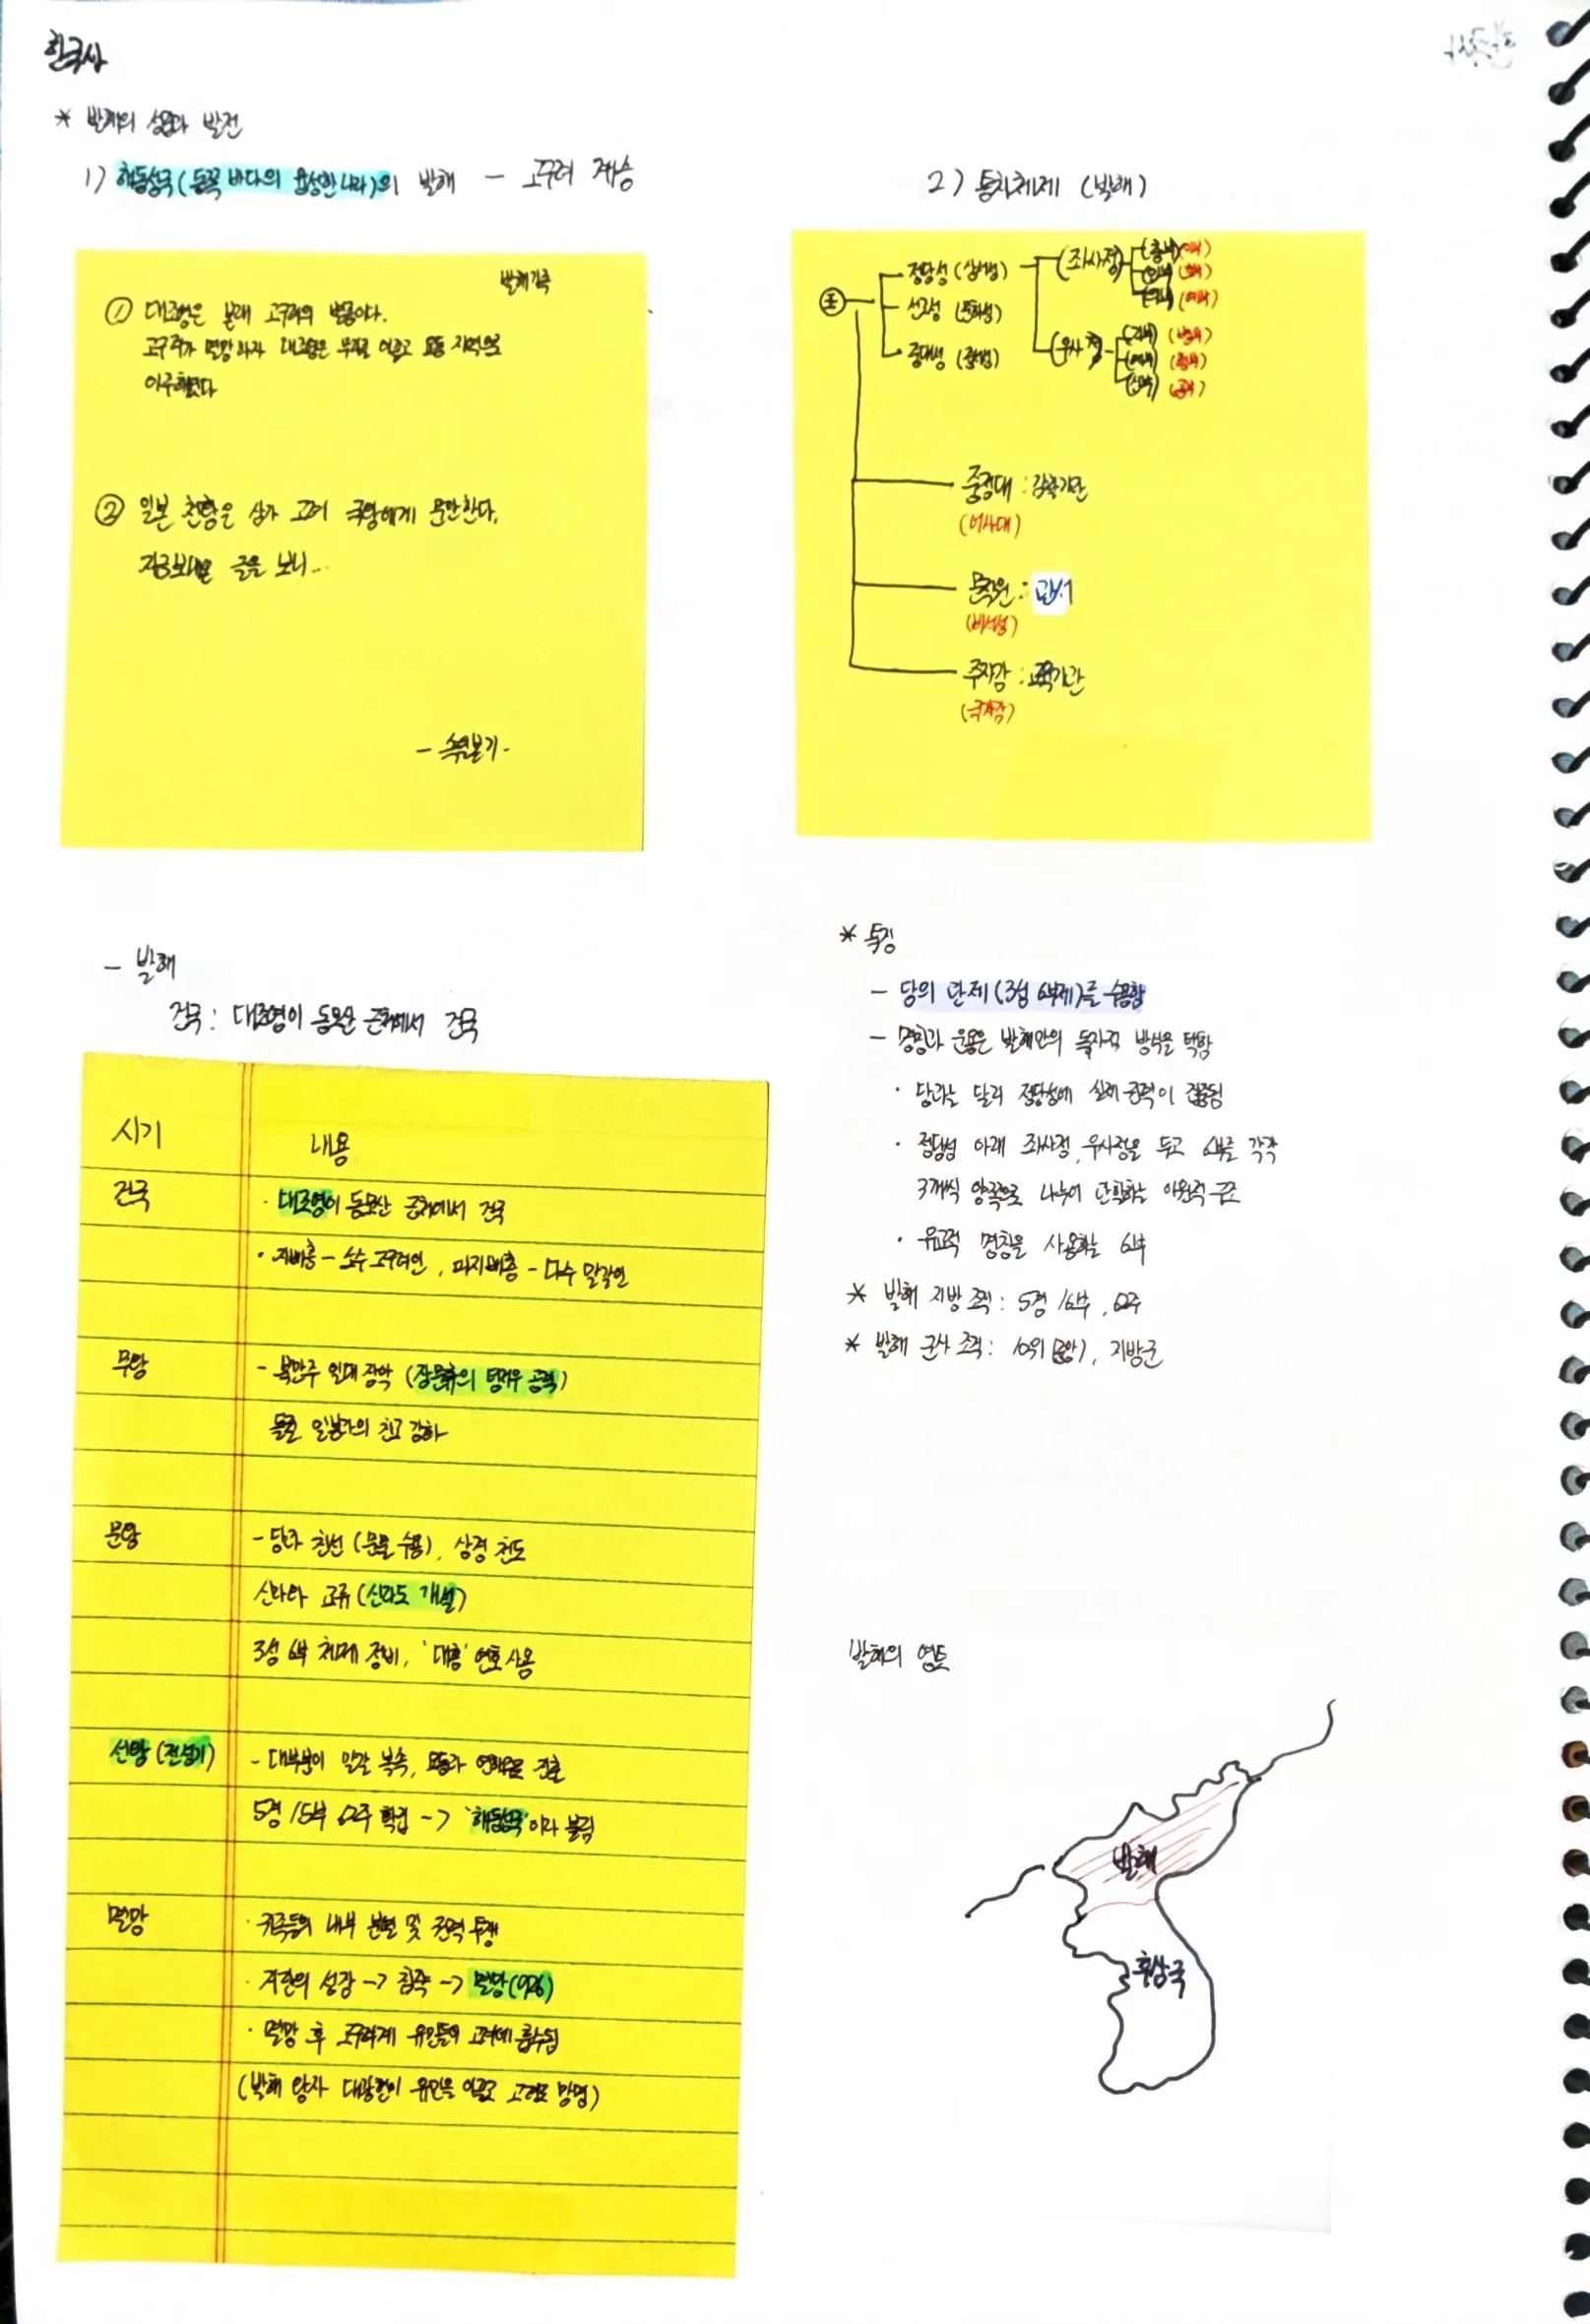 한국사
* 발해의 성립과 발전
1) 해동성국(동쪽 바다의 융성한 나라)의 발해 - 고구려 계승
발해 건국
① 대조영은 본래 고구려의 별종이다.
고구려가 멸망하자 대조영은 무리를 이끌고 요동 지역으로
이주하였다
② 일본 천황은 삼가 고려 국왕에게 문안한다.
지금 보내온 글을 보니...
- 속일본기 -
- 발해
건국 : 대조영이 동모산 근처에서 건국
시기
내용
건국
· 대조영이 동모산 근처에서 건국
· 지배층 - 소수 고구려인, 피지배층 - 다수 말갈인
무왕
- 북만주 일대 장악 (장문휴의 등주 공격)
돌궐, 일본과의 친교 강화
문왕
- 당과 친선 (문물 수용), 상경 천도
신라와 교류 (신라도 개설)
3성 6부 체제 정비, '대흥' 연호 사용
선왕 (전성기)
- 대부분의 말갈 복속, 요동과 연해주로 진출
5경 15부 62주 확립 -> '해동성국'이라 불림
멸망
· 귀족들의 내부 분열 및 권력 투쟁
· 거란의 성장 -> 침략 -> 멸망(926)
· 멸망 후 고구려계 유민들이 고려에 흡수됨
(발해 왕자 대광현이 유민을 이끌고 고려로 망명)
2) 통치체제 (발해)
왕
정당성 (상서성)
선조성 (문하성)
중대성 (중서성)
(좌사정)
(충부) (이부)
(인부) (호부)
(의부) (예부)
(우사정)
(지부) (병부)
(예부) (형부)
(신부) (공부)
중정대 : 감찰기관
(어사대)
문적원 : 관서
(비서성)
주자감 : 교육기관
(국자감)
* 특징
- 당의 관제 (3성 6부제)를 수용함
- 명칭과 운용은 발해만의 독자적 방식을 택함
· 당과는 달리 정당성에 실제 권력이 집중됨
· 정당성 아래 좌사정, 우사정을 두고 6부를 각각
3개씩 양쪽으로 나누어 관할하는 이원적 구조
· 유교적 명칭을 사용하는 6부
* 발해 지방 조직 : 5경 15부, 62주
* 발해 군사 조직 : 10위 (중앙), 지방군
발해의 영토
발해
후삼국